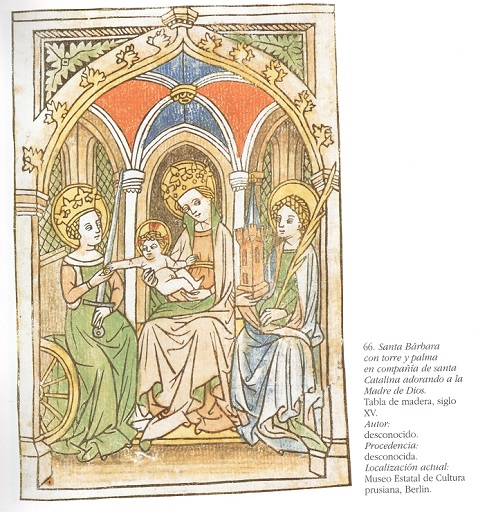 66. Santa Bárbara
con torre y palma
en compañía de santa
Catalina adorando a la
Madre de Dios.
Tabla de madera, siglo
XV.
Autor:
desconocido.
Procedencia:
desconocida.
Localización actual:
Museo Estatal de Cultura
prusiana, Berlin.